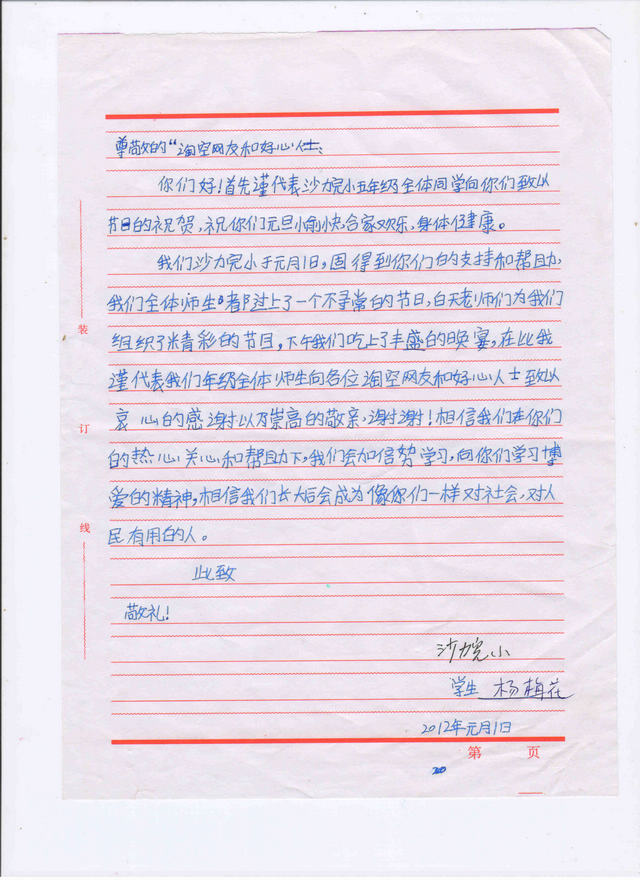 尊敬的“淘空网友和好心人士:
你们好!首先谨代表沙力完小五年级全体同学向你们致以
节日的祝贺,祝你们元旦愉快,合家欢乐,身体健康。
我们沙力完小于元月1日,因得到你们的支持和帮助,
我们全体师生都过上了一个不寻常的节日,白天老师们为我们
组织了精彩的节目,下午我们吃上了丰盛的晚宴,在此我
谨代表我们年级全体师生向各位淘空网友和好心人士致以
哀心的感谢以及崇高的敬亲,谢谢!相信我们在你们
的热心关心和帮助下,我们会加倍努学习,向你们学习博
爱的精神,相信我们长大后会成为像你们一样对社会,对人
民有用的人。
此致
敬礼!
沙力完小
学生 杨梅花
2012年元月1日
装
订
线
第 页